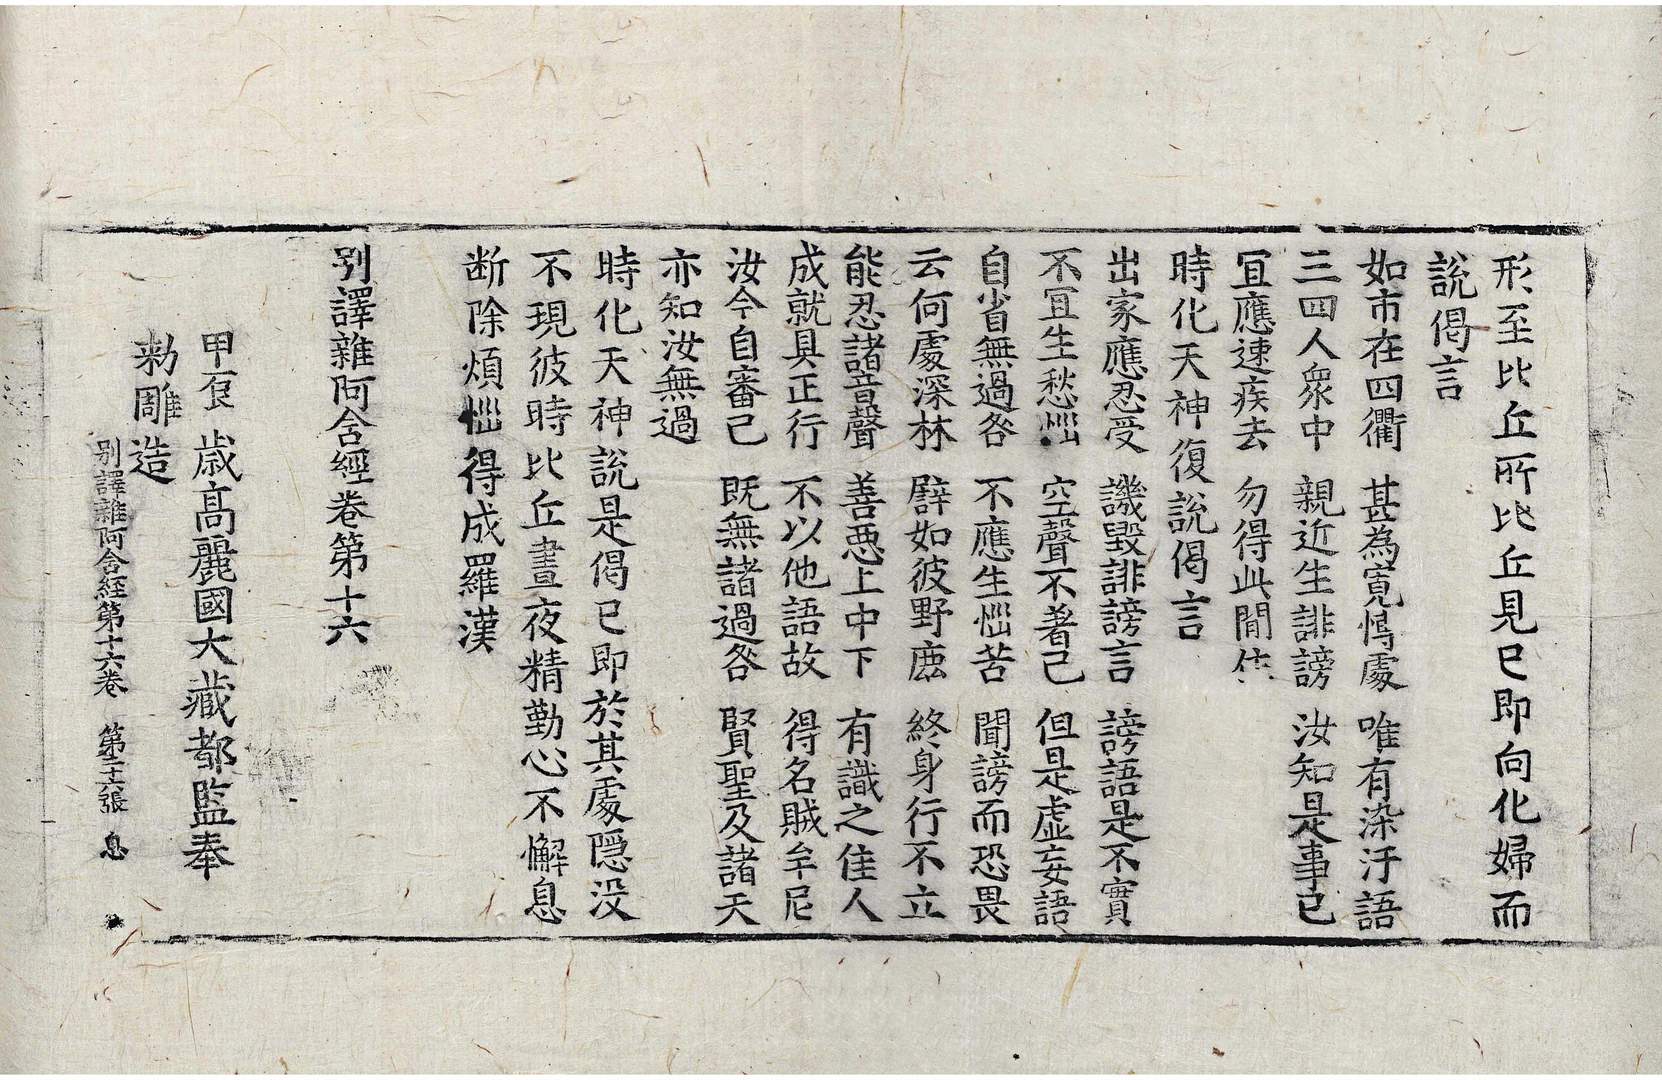 形至比丘所比丘見已即向化婦而
說偈言
如市在四衢　甚為寬愽處　唯有染汙語
三四人衆中　親近生誹謗　汝知是事已
冝應速疾去　勿得此閒住
時化天神復說偈言
出家應忍受　譏毀誹謗言　謗語是不實
不冝生愁惱　空聲不著己　但是虛妄語
自省無過咎　不應生惱苦　聞謗而恐畏
云何處深林　譬如彼野鹿　終身行不立
能忍諸音聲　善惡上中下　有識之佳人
成就具正行　不以他語故　得名賊牟尼
汝今自審己　既無諸過咎　賢聖及諸天
亦知汝無過
時化天神說是偈已即於其處隱没
不現彼時比丘晝夜精勤心不懈息
断除煩惱得成羅漢
別譯雜阿含經卷第十六
甲辰歲高麗國大藏都監奉
勑雕造
別譯雜阿含経第十六卷　第二十六張　息